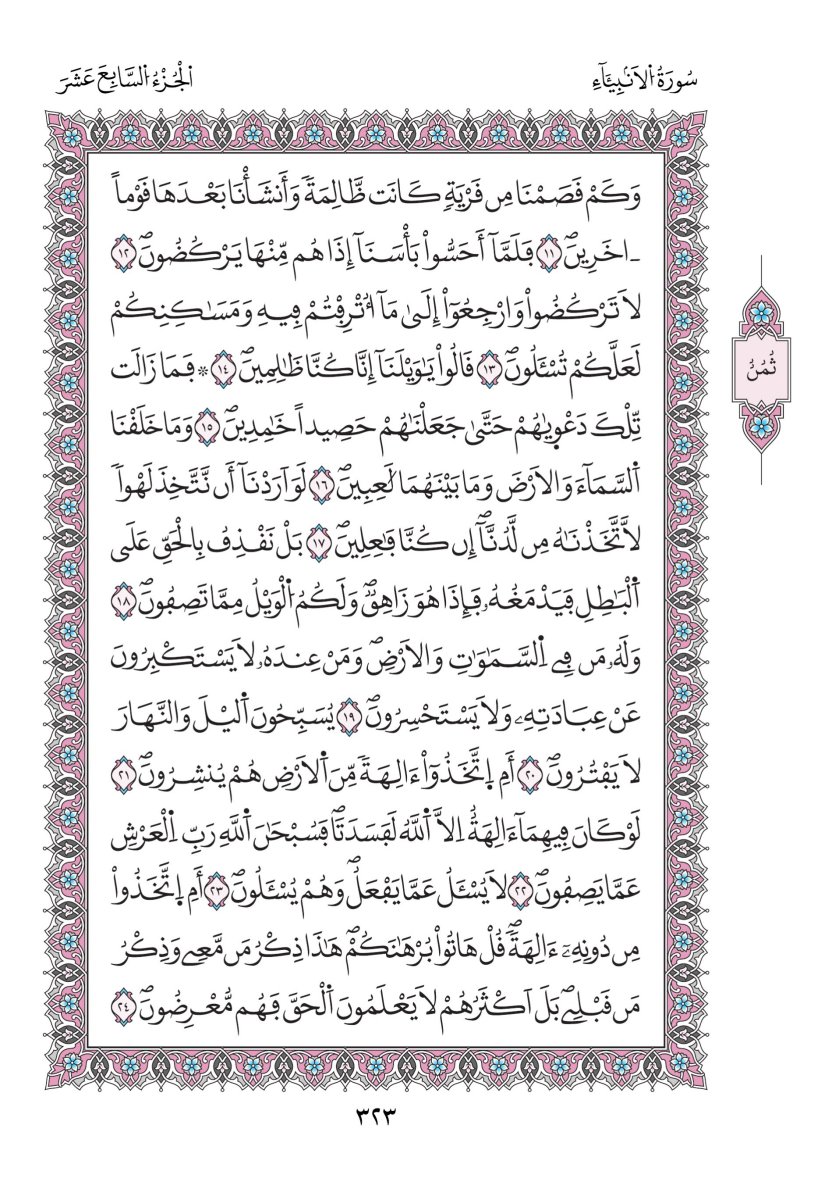 سُورَةُ اُ۬لَانۢبِيَآءِ
اُ۬لْجُزْءُ اُ۬لسَّابِعَ عَشَرَ
وَكَمْ قَصَمْنَا مِن قَرْيَةٖ كَانَت ظَّالِمَةٗ وَأَنشَأْنَا بَعْدَهَا قَوْماً
ـ اخَرِينَۖ ١١ فَلَمَّآ أَحَسُّواْ بَأْسَنَآ إِذَا هُم مِّنْهَا يَرْكُضُونَۖ ١٢
لَا تَرْكُضُواْ وَارْجِعُوٓاْ إِلَىٰ مَآ أُتْرِفْتُمْ فِيهِ وَمَسَٰكِنِكُمْ
لَعَلَّكُمْ تُسْـَٔلُونَۖ ١٣ قَالُواْ يَٰوَيْلَنَآ إِنَّا كُنَّا ظَٰلِمِينَۖ ١٤ ۞ فَمَا زَالَت
تِّلْكَ دَعْو۪يٰهُمْ حَتَّىٰ جَعَلْنَٰهُمْ حَصِيداً خَٰمِدِينَۖ ١٥ وَمَا خَلَقْنَا
اَ۬لسَّمَآءَ وَالَارْضَ وَمَا بَيْنَهُمَا لَٰعِبِينَۖ ١٦ لَوَ اَرَدْنَآ أَن نَّتَّخِذَ لَهْواٗ
لَّاتَّخَذْنَٰهُ مِن لَّدُنَّآۖ إِن كُنَّا فَٰعِلِينَۖ ١٧ بَلْ نَقْذِفُ بِالْحَقِّ عَلَى
اَ۬لْبَٰطِلِ فَيَدْمَغُهُۥ فَإِذَا هُوَ زَاهِقٞۖ وَلَكُمُ اُ۬لْوَيْلُ مِمَّا تَصِفُونَۖ ١٨
وَلَهُۥ مَن فِے اِ۬لسَّمَٰوَٰتِ وَالَارْضِۖ وَمَنْ عِندَهُۥ لَا يَسْتَكْبِرُونَ
عَنْ عِبَادَتِهِۦ وَلَا يَسْتَحْسِرُونَۖ ١٩ يُسَبِّحُونَ اَ۬ليْلَ وَالنَّهَارَ
لَا يَفْتُرُونَۖ ٢٠ أَمِ اِ۪تَّخَذُوٓاْ ءَالِهَةٗ مِّنَ اَ۬لَارْضِ هُمْ يُنشِرُونَۖ ٢١
لَوْ كَانَ فِيهِمَآ ءَالِهَةٌ اِلَّا اَ۬للَّهُ لَفَسَدَتَاۖ فَسُبْحَٰنَ اَ۬للَّهِ رَبِّ اِ۬لْعَرْشِ
عَمَّا يَصِفُونَۖ ٢٢ لَا يُسْـَٔلُ عَمَّا يَفْعَلُۖ وَهُمْ يُسْـَٔلُونَۖ ٢٣ أَمِ اِ۪تَّخَذُواْ
مِن دُونِهِۦٓ ءَالِهَةٗۖ قُلْ هَاتُواْ بُرْهَٰنَكُمْۖ هَٰذَا ذِكْرُ مَن مَّعِے وَذِكْرُ
مَن قَبْلِےۖ بَلَ اَكْثَرُهُمْ لَا يَعْلَمُونَ اَ۬لْحَقَّ فَهُم مُّعْرِضُونَۖ ٢٤
ثُمُنُ
٣٢٣